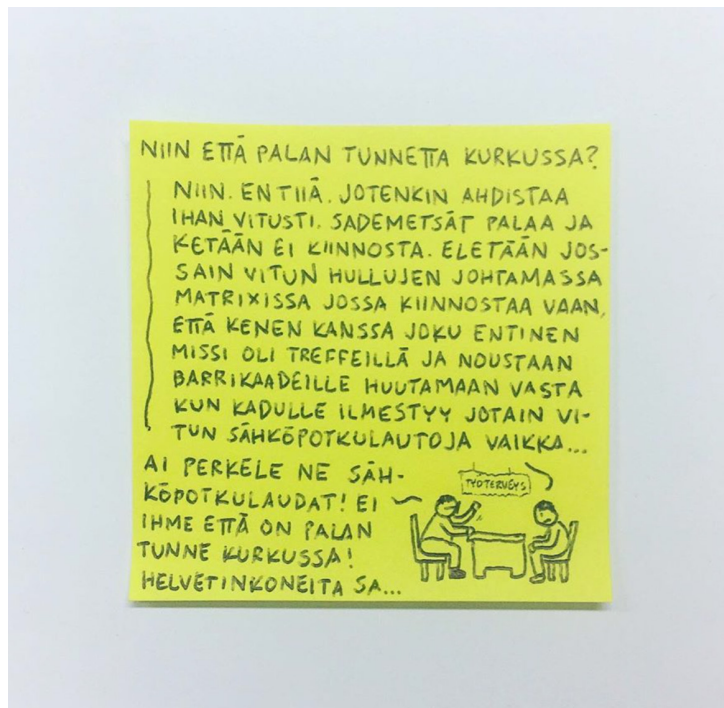 NIIN ETTÄ PALAN TUNNETTA KURKUSSA?
NIIN. EN TIIÄ. JOTENKIN AHDISTAA
IHAN VITUSTI. SADEMETSÄT PALAA JA
KETÄÄN EI KIINNOSTA. ELETÄÄN JOS-
SAIN VITUN HULLUJEN JOHTAMASSA
MATRIXISSA JOSSA KIINNOSTAA VAAN,
ETTÄ KENEN KANSSA JOKU ENTINEN
MISSI OLI TREFFEILLÄ JA NOUSTAAN
BARRIKAADEILLE HUUTAMAAN VASTA
KUN KADULLE ILMESTYY JOTAIN VI-
TUN SÄHKÖPOTKULAUTOJA VAIKKA...
AI PERKELE NE SÄH-
KÖPOTKULAUDAT! EI
IHME ETTÄ ON PALAN
TUNNE KURKUSSA!
HELVETINKONEITA SA...
TYÖTERVEYS